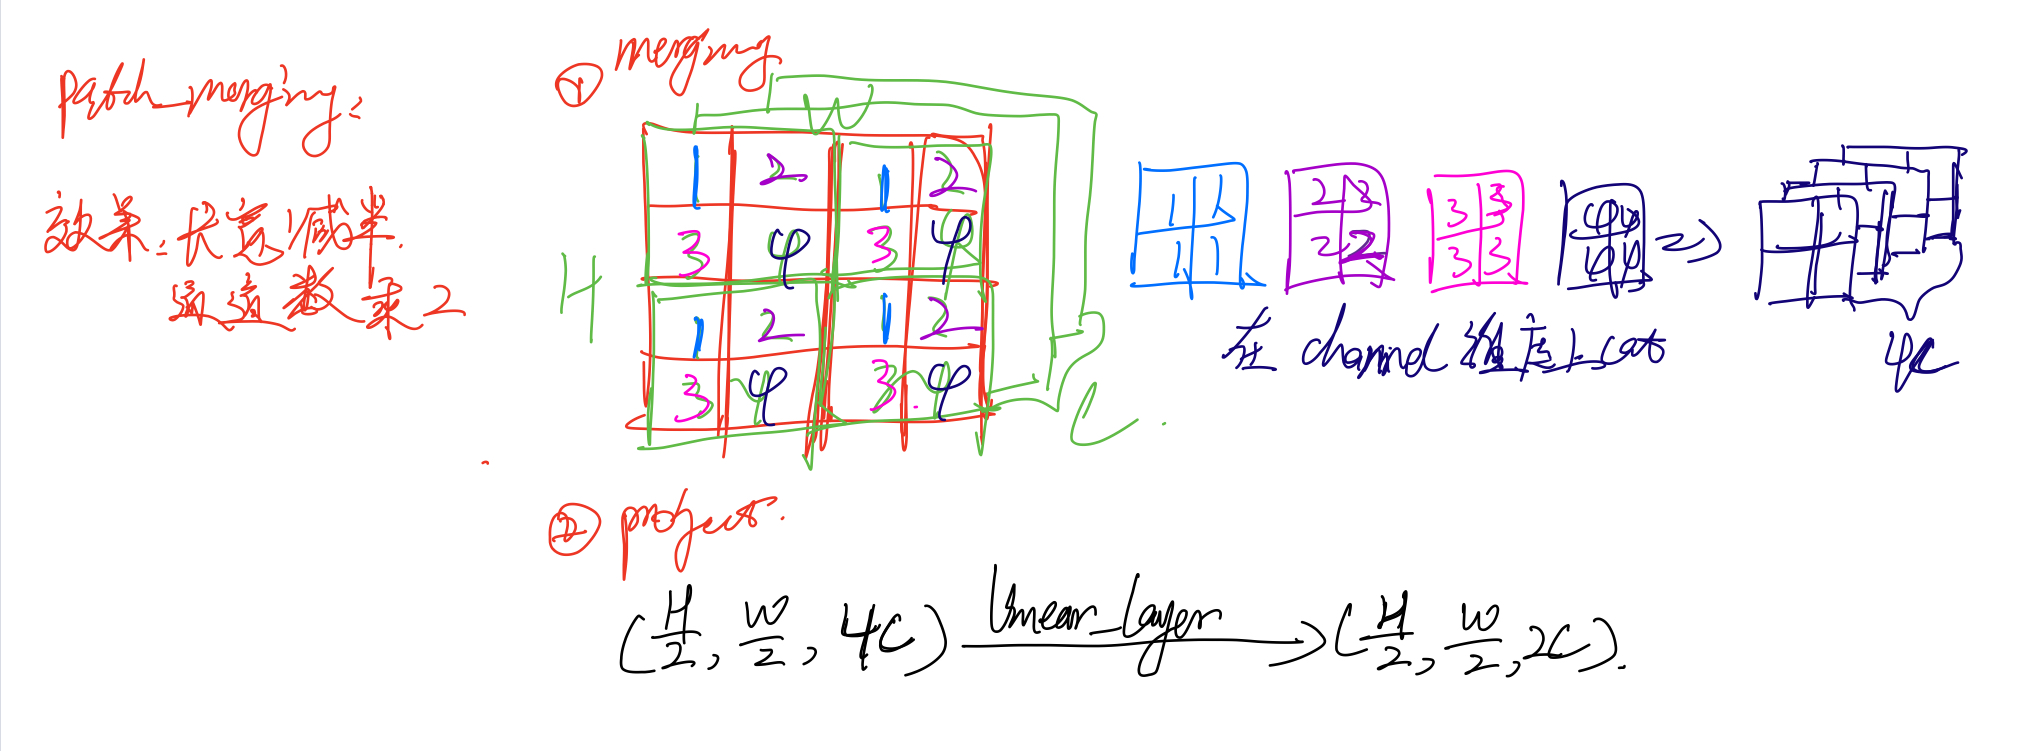 patch_merging:
效果:长宽减半.
通道数乘2
① merging
W
H
C
1 2 1 2
3 4 3 4
1 2 1 2
3 4 3 4
1 1
1 1
2 2
2 2
3 3
3 3
4 4
4 4
=>
在 channel 维度上 cat
4C
② project.
(H/2, W/2, 4C) Linear_Layer → (H/2, W/2, 2C).